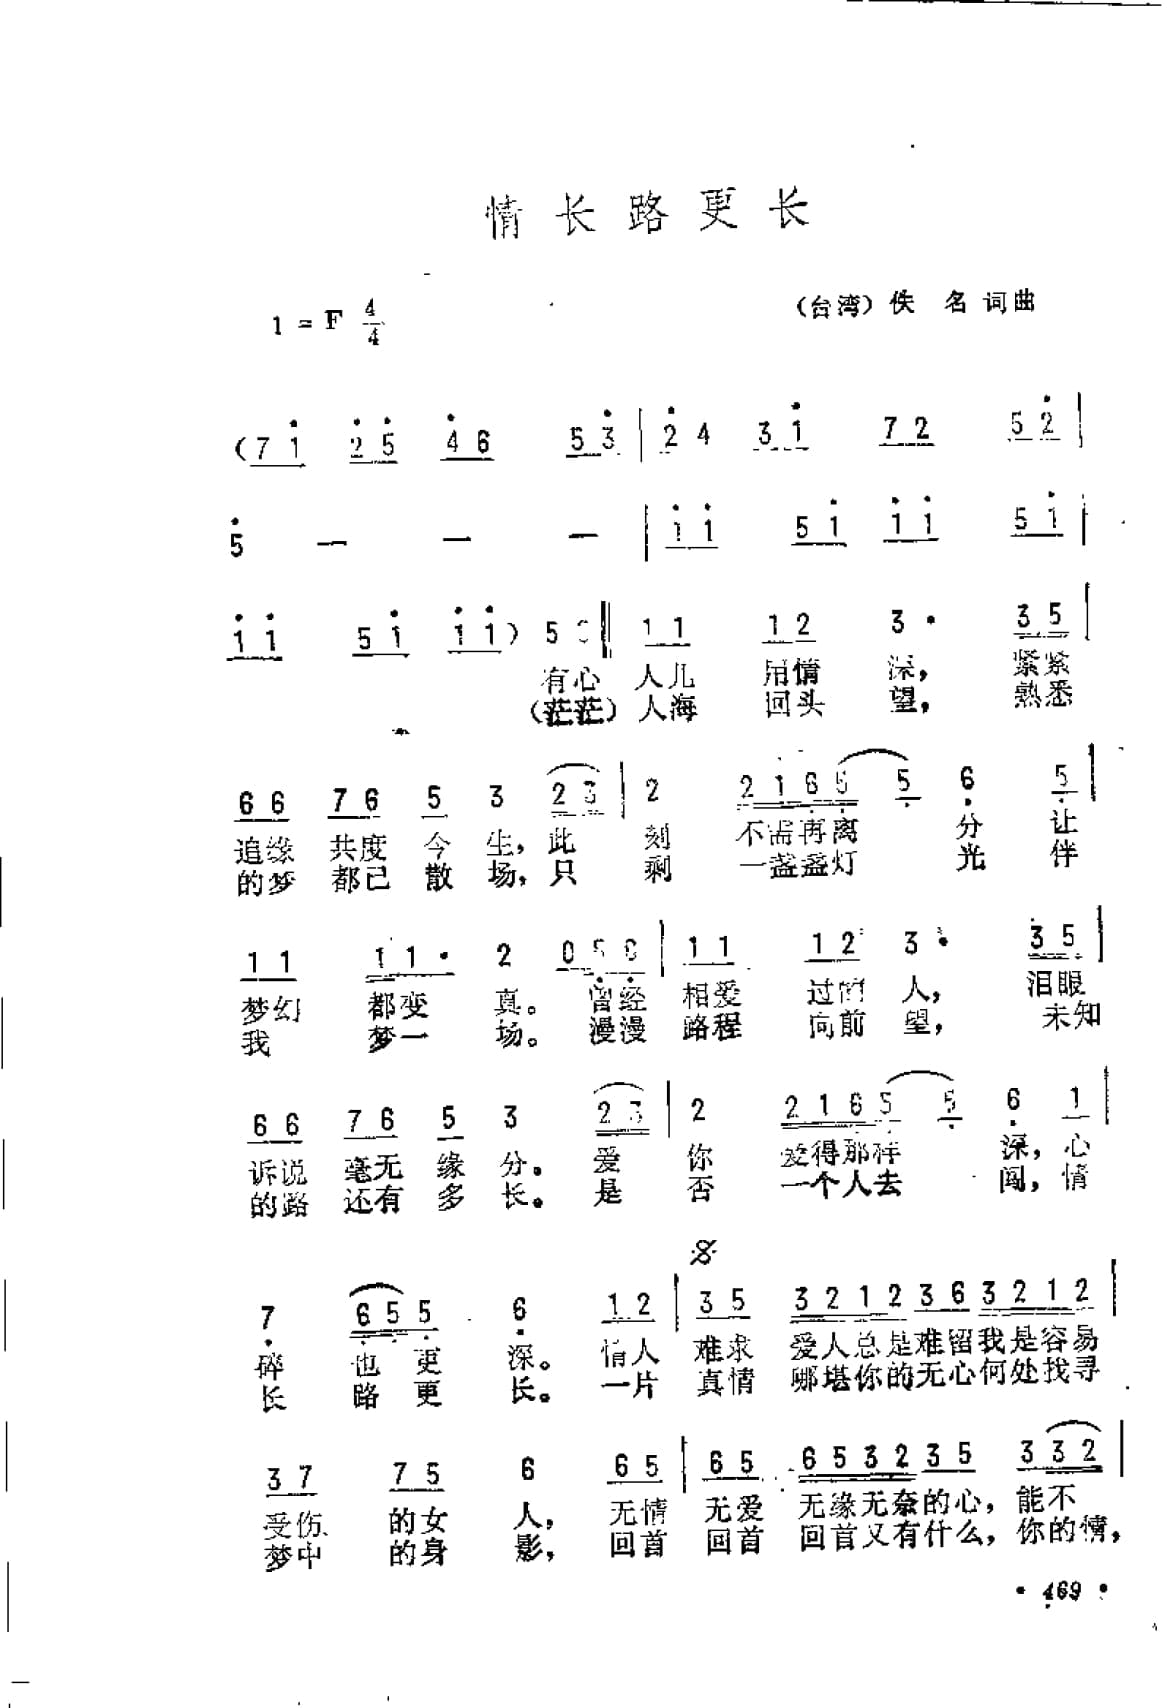 情长路更长
1=F 4/4 （台湾）佚 名 词曲
(7 1̇ 2̇ 5̇ 4̇ 6 5 3̇ | 2̇ 4 3 1̇ 7 2 5 2̇ |
5̇ — — — | 1̇ 1̇ 5 1̇ 1̇ 1̇ 5 1̇ |
1̇ 1̇ 5 1̇ 1̇ 1̇) 5 ‖ 1 1 1 2 3· 3 5 |
有心 人儿 用情 深，紧紧
（茫茫）人海 回头 望，熟悉
6 6 7 6 5 3 2 3 | 2 2 1 6̣ 5̣ 5̣ 6̣ 5̣ |
追缘 共度 今 生，此 刻 不需再离 分 让
的梦 都已 散 场，只 剩 一盏盏灯 光 伴
1 1 1 1· 2 0 5̣ 6̣ | 1 1 1 2 3· 3 5 |
梦幻 都变 真。曾经 相爱 过的 人，泪眼
我 梦一 场。漫漫 路程 向前 望，未知
6 6 7 6 5 3 2 3 | 2 2 1 6̣ 5̣ 5̣ 6̣ 1 |
诉说 毫无 缘 分。爱 你 爱得那样 深，心
的路 还有 多 长。是 否 一个人去 闯，情
𝄋
7̣ 6̣ 5̣ 5̣ 6̣ 1 2 | 3 5 3 2 1 2 3 6 3 2 1 2 |
碎 也 更 深。情人 难求 爱人总是难留我是容易
长 路 更 长。一片 真情 哪堪你的无心何处找寻
3 7 7 5 6 6 5 | 6 5 6 5 3 2 3 5 3 3 2 |
受伤 的女 人，无情 无爱 无缘无奈的心，能不
梦中 的身 影，回首 回首 回首又有什么，你的情，
• 469 •